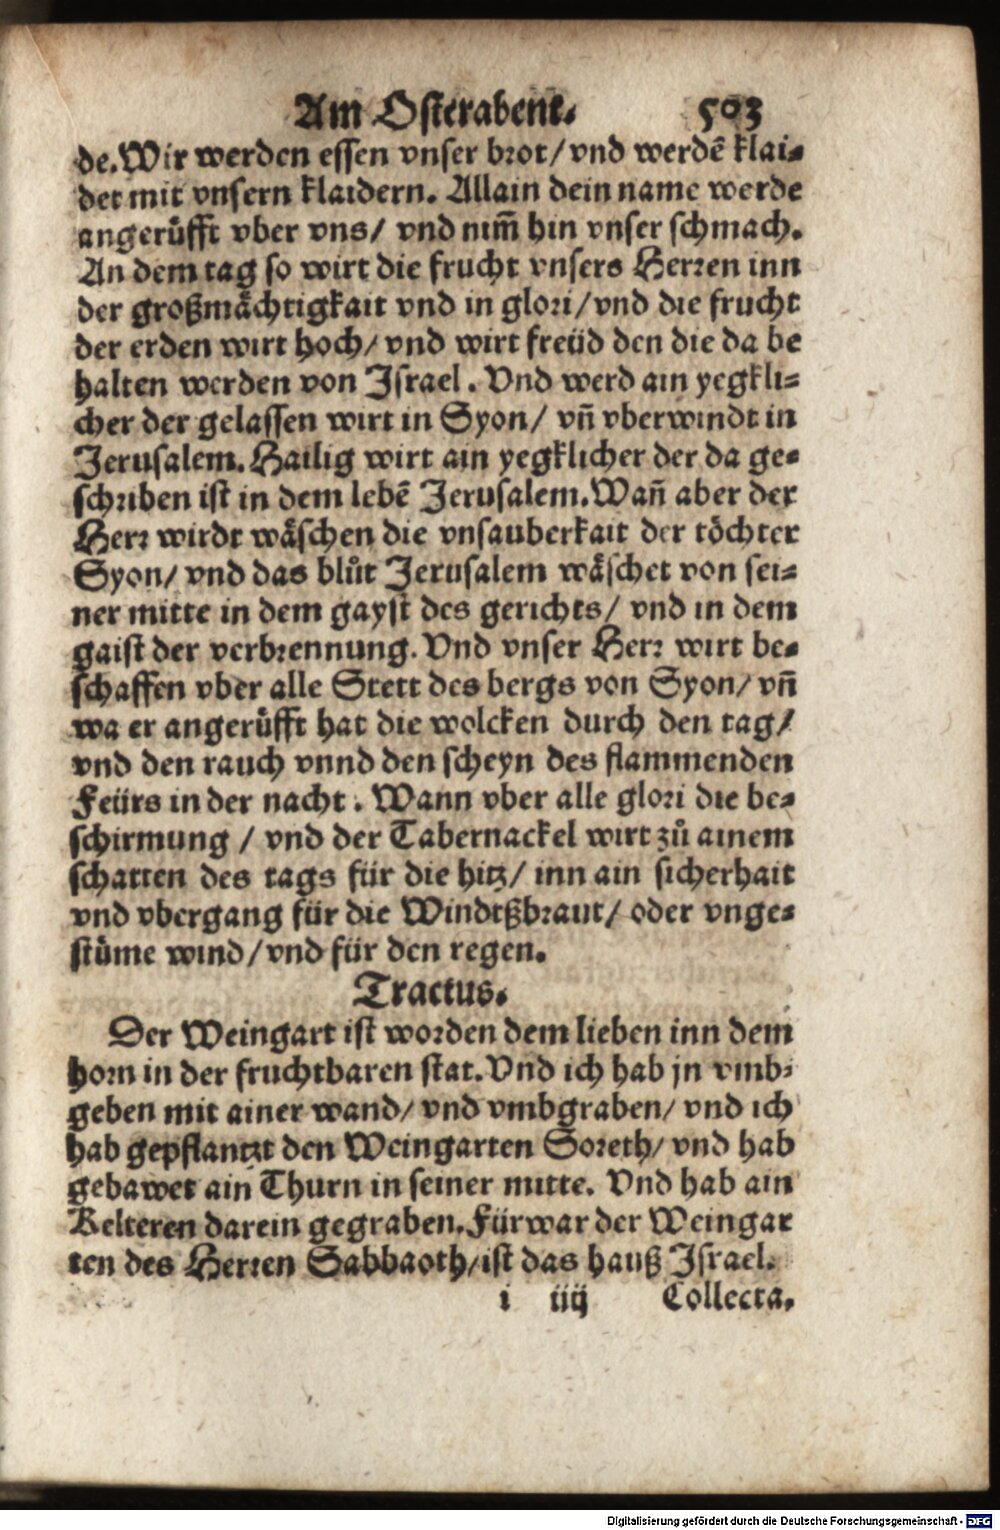 Am Osterabent. 503
de. Wir werden essen vnser brot/ vnd werdē klai-
det mit vnsern klaidern. Allain dein name werde
angeruͤfft vber vns/ vnd nim̄ hin vnser schmach.
An dem tag so wirt die frucht vnsers Herren inn
der großmaͤchtigkait vnd in glori/ vnd die frucht
der erden wirt hoch/ vnd wirt freüd den die da be
halten werden von Israel. Vnd werd ain yegkli-
cher der gelassen wirt in Syon/ vn̄ vberwindt in
Jerusalem. Hailig wirt ain yegklicher der da ge-
schriben ist in dem lebē Jerusalem. Wan̄ aber der
Herr wirdt waͤschen die vnsauberkait der toͤchter
Syon/ vnd das bluͦt Jerusalem waͤschet von sei-
ner mitte in dem gayst des gerichts/ vnd in dem
gaist der verbrennung. Vnd vnser Herr wirt be-
schaffen vber alle Stett des bergs von Syon/ vn̄
wa er angeruͤfft hat die wolcken durch den tag/
vnd den rauch vnnd den scheyn des flammenden
Feürs in der nacht. Wann vber alle glori die be-
schirmung / vnd der Tabernackel wirt zuͦ ainem
schatten des tags für die hitz/ inn ain sicherhait
vnd vbergang für die Windtßbraut/ oder vnge-
stuͤme wind/ vnd für den regen.
Tractus.
Der Weingart ist worden dem lieben inn dem
horn in der fruchtbaren stat. Vnd ich hab jn vmb-
geben mit ainer wand/ vnd vmbgraben/ vnd ich
hab gepflantzt den Weingarten Soreth/ vnd hab
gebawet ain Thurn in seiner mitte. Vnd hab ain
Kelteren darein gegraben. Fürwar der Weingar
ten des Herren Sabbaoth/ ist das hauß Israel.
i iiij Collecta.
Digitalisierung gefördert durch die Deutsche Forschungsgemeinschaft - DFG